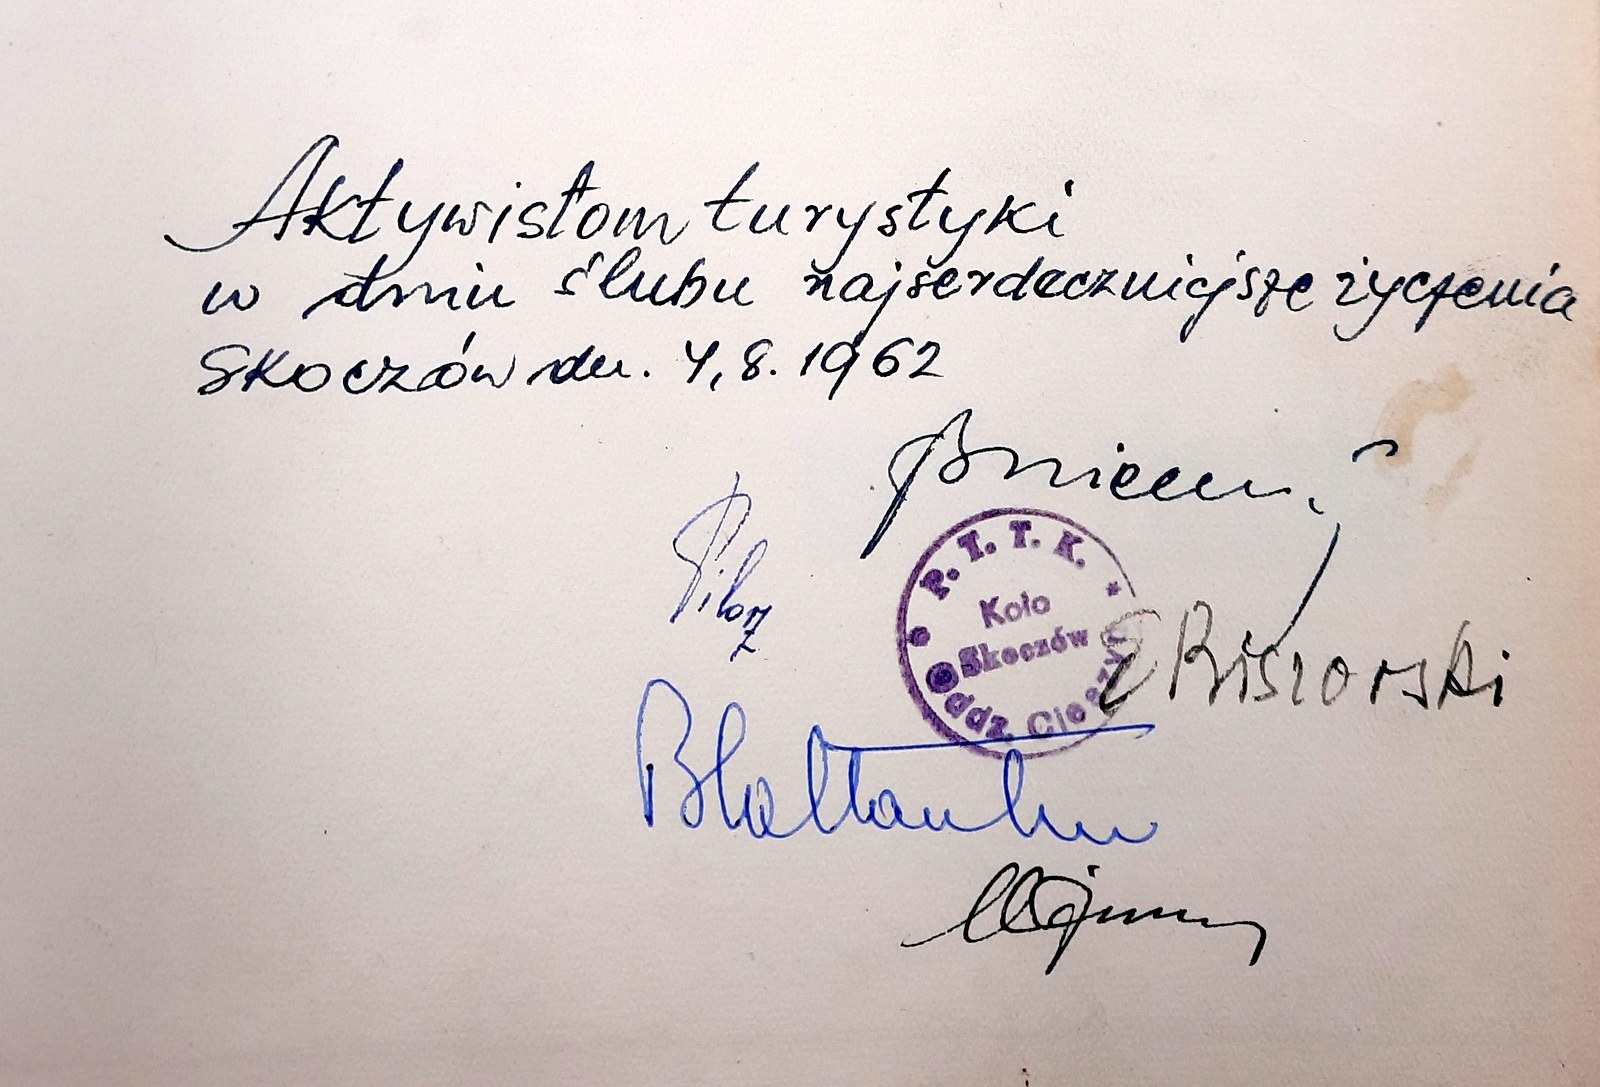 Aktywistom turystyki
w dniu ślubu najserdeczniejsze życzenia
Skoczów dn. 4,8. 1962
Pilorz
P.T.T.K.
Koło
Skoczów
Oddz. Cieszyn